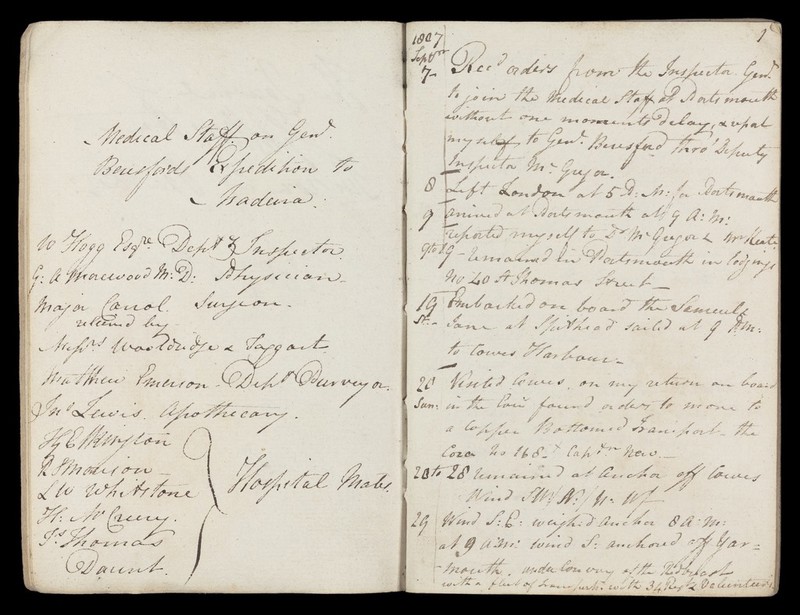 Medical Staff on Genl.
Beresfords Expedition to
Madeira.
W Hogg Esqre. Depty Inspector.
G: A Morewood M: D: Physician -
Major Carrol. Surgeon -
relieved by
Messrs Wooldridge & Taggart.
Matthew Emerson - Depy Purveyor.
Jno Lewis. Apothecary.
Hy Elkington
R Morison -
L W Whitstone
H: McCreery.
Js Thomas
Daunt.
Hospital Mates.
1
1807
Septbr
7 - Recd orders from the Inspector Genl.
to join the Medical Staff at Portsmouth
without one moments delay, & report
myself to Genl. Beresford thro' Deputy
Inspector McGregor.
8 Left London at 5 P: M: for Portsmouth
9 arrived at Portsmouth at 9 A: M:
reported myself to Dr McGregor & Mr Keate.
9 to 19 - remained in Portsmouth in lodgings
No 40 St Thomas Street -
19 Embarked on board the Samuel &
St - Jane at Spithead sailed at 9 P.M:
to Cowes Harbour -
20 Visited Cowes, on my return on board
Sun: in the found orders to move to
a Copper Bottomed Transport - the
Cora No 168 - Captn New. -
20 to 28 remained at Anchor off Cowes
Wind SW: W: / N: W
29 Wind S: E: weighed Anchor 8 A: M:
at 9 A: M: wind S: anchored off Yar=
mouth. under Convoy of the
with a fleet of transports with 34 Regt & Volunteers